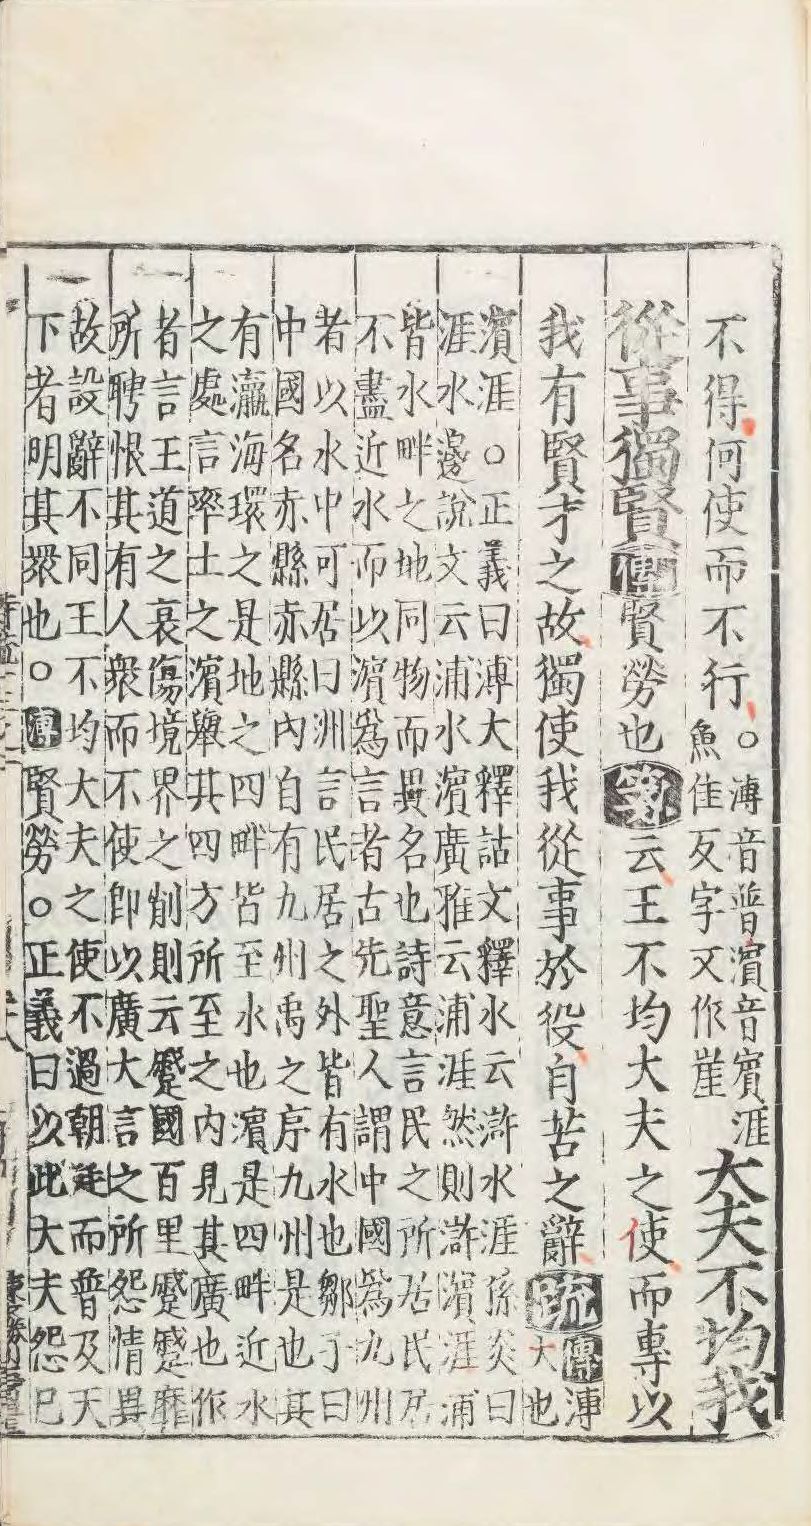 不得何使而不行。溥音普濱音賓涯
魚佳反字又作崖
大夫不均我
從事獨賢傳賢勞也箋云王不均大夫之使而專以
我有賢才之故獨使我從事於役自苦之辭疏傳溥
大也
濱涯。正義曰溥大釋詁文釋水云滸水涯孫炎曰
涯水邊說文云浦水濱廣雅云浦涯然則滸濱涯浦
皆水畔之地同物而異名也詩意言民之所居民居
不盡近水而以濱為言者古先聖人謂中國為九州
者以水中可居曰洲言民居之外皆有水也鄒子曰
中國名赤縣赤縣內自有九州禹之序九州是也其
有瀛海環之是地之四畔皆至水也濱是四畔近水
之處言率土之濱舉其四方所至之內見其廣也作
者言王道之衰傷境界之削則云蹙國百里蹙蹙靡
所聘恨其有人衆而不使即以廣大言之所怨情異
故設辭不同王不均大夫之使不過朝廷而普及天
下者明其衆也。傳賢勞。正義曰以此大夫怨已